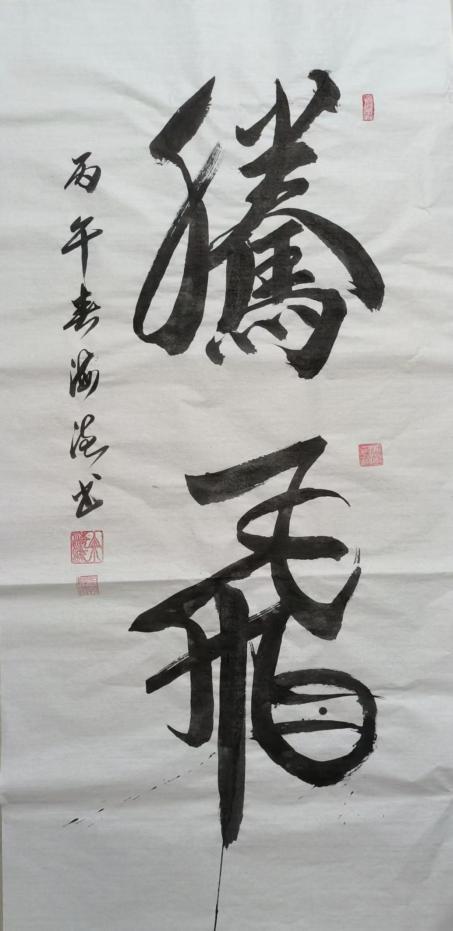 騰飛
丙午春海德书